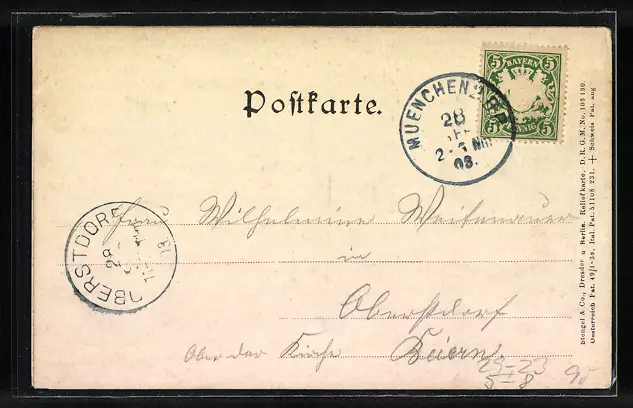 Postkarte.
BAYERN
5 5
5 PFENNIG 5
MUENCHEN 2. B.P.
28
SEP
2-3 Nm
03.
OBERSTDORF
28
Frau Wilhelmine
in
Oberstdorf
Ober der Kirche
Stengel & Co., Dresden u. Berlin. Reliefkarte. D. R. G. M. No. 105 130.
Oesterreich Pat. 49/1-36. Ital. Pat. 51108 231. + Schweiz Pat. ang